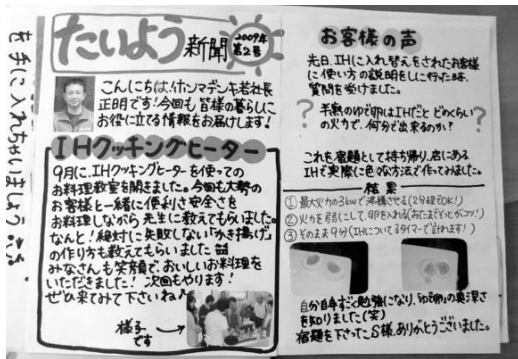 たいよう新聞
2009年
第2号
こんにちは!ホンマデンキ若社長
正明です!今回も皆様の暮らしに
お役に立てる情報をお届けします!
IHクッキングヒーター
9月に、IHクッキングヒーターを使っての
お料理教室を開きました。今回も大勢の
お客様と一緒に便利さ安全さを
お料理しながら先生に教えてもらいました。
なんと!絶対に失敗しない「かき揚げ」
の作り方も教えてもらいました
みなさんも笑顔で、おいしいお料理を
いただきました!次回もやります!
ぜひ来てみて下さいね♪
様子
です
お客様の声
先日、IHに入れ替えをされたお客様
に使い方の説明をしに行った時、
質問を受けました。
? 半熟のゆで卵はIHだとどのくらい ?
の火力で、何分で出来るのか?
これを宿題として持ち帰り、店にある
IHで実際に色々な方法で作ってみました。
結果
①最大火力の3kwで沸騰させる(2分程でOK!)
②火力を弱にして、卵を入れる(おたまでそっとがコツ!)
③そのまま9分(IHについてるタイマーで計れます!)
自分自身すごく勉強になり、「ゆで卵」の奥深さ
を知りました(笑)
宿題を下さったS様、ありがとうございました。
右手に入れちゃいましょう